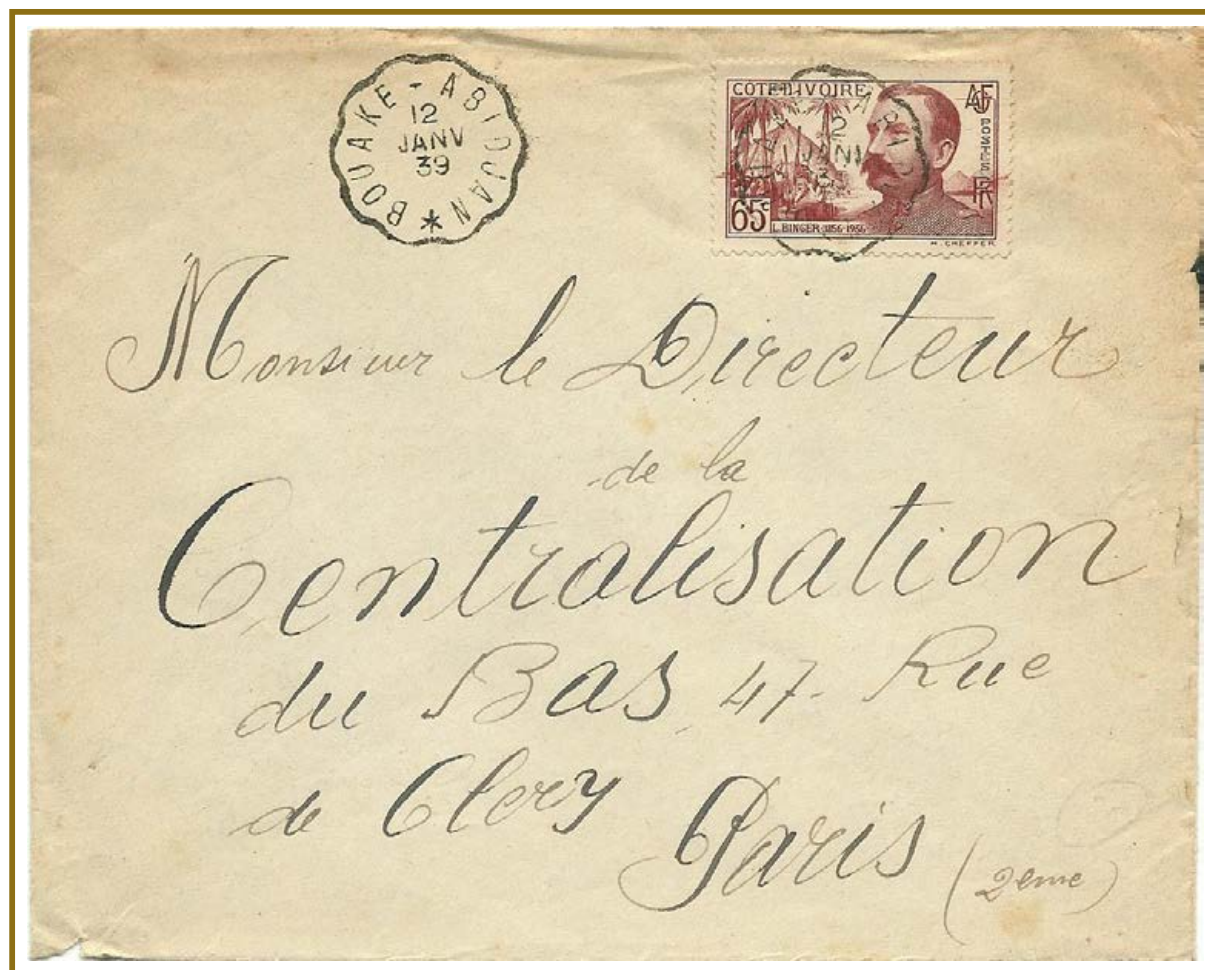 BOUAKE - ABIDJAN *
12
JANV
39
COTE D'IVOIRE
AOF
POSTES
RF
65c
L. BINGER 1856-1936
H. CHEFFER
12
JANV
Monsieur le Directeur
de la
Centralisation
du Bas, 47- Rue
de Clery
Paris (2eme)